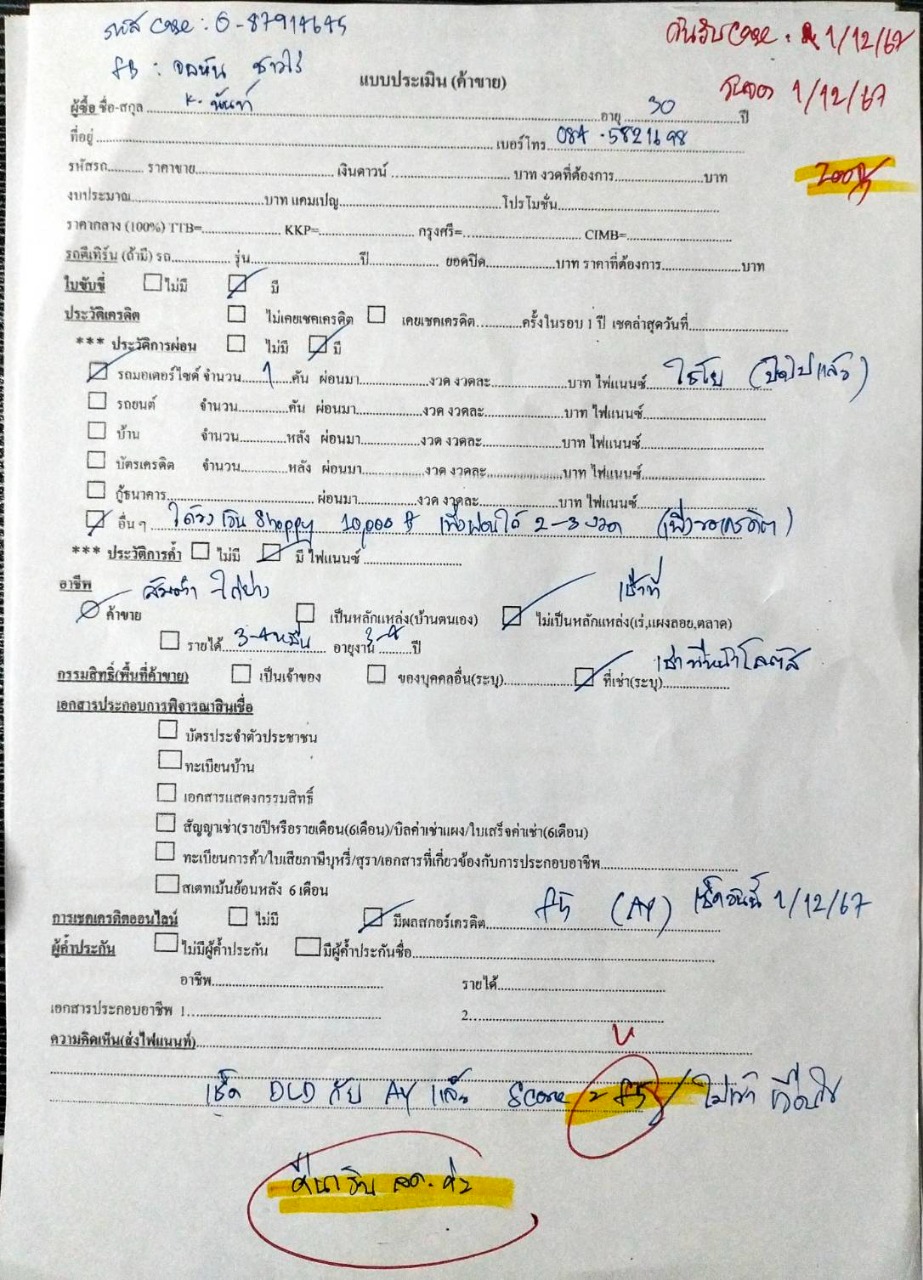 รหัส case : 6-87914645
วันรับ case : 1/12/67
fb : จอหัน ชาวไร่
วันจอง 1/12/67
แบบประเมิน (ค้าขาย)
ผู้ซื้อ ชื่อ-สกุล K. นันท์ อายุ 30 ปี
ที่อยู่ เบอร์โทร 084-5821698
รหัสรถ ราคาขาย เงินดาวน์ บาท งวดที่ต้องการ บาท
งบประมาณ บาท แคมเปญ โปรโมชั่น
ราคากลาง (100%) TTB= KKP= กรุงศรี= CIMB=
รถตีเทิร์น (ถ้ามี) รถ รุ่น ปี ยอดปิด บาท ราคาที่ต้องการ บาท
ใบขับขี่ ไม่มี มี
ประวัติเครดิต ไม่เคยเชคเครดิต เคยเชคเครดิต ครั้งในรอบ 1 ปี เชคล่าสุดวันที่
*** ประวัติการผ่อน ไม่มี มี
รถมอเตอร์ไซด์ จำนวน 1 คัน ผ่อนมา งวด งวดละ บาท ไฟแนนซ์ ไฮเวย์ (ปิดไปแล้ว)
รถยนต์ จำนวน คัน ผ่อนมา งวด งวดละ บาท ไฟแนนซ์
บ้าน จำนวน หลัง ผ่อนมา งวด งวดละ บาท ไฟแนนซ์
บัตรเครดิต จำนวน หลัง ผ่อนมา งวด งวดละ บาท ไฟแนนซ์
กู้ธนาคาร ผ่อนมา งวด งวดละ บาท ไฟแนนซ์
อื่น ๆ ได้วงเงิน Shoppy 10,000 ฿ เพิ่งผ่อนได้ 2-3 งวด (เพิ่งขอเครดิต)
*** ประวัติการค้ำ ไม่มี มี ไฟแนนซ์
อาชีพ ส้มตำ - ไก่ย่าง เช่าที่
ค้าขาย เป็นหลักแหล่ง(บ้านตนเอง) ไม่เป็นหลักแหล่ง(เร่,แผงลอย,ตลาด)
รายได้ 3-4 หมื่น อายุงาน 3-4 ปี
กรรมสิทธิ์(พื้นที่ค้าขาย) เป็นเจ้าของ ของบุคคลอื่น(ระบุ) ที่เช่า(ระบุ) เช่าที่หน้าโลตัส
เอกสารประกอบการพิจารณาสินเชื่อ
บัตรประจำตัวประชาชน
ทะเบียนบ้าน
เอกสารแสดงกรรมสิทธิ์
สัญญาเช่า(รายปีหรือรายเดือน(6เดือน)/บิลค่าเช่าแผง/ใบเสร็จค่าเช่า(6เดือน)
ทะเบียนการค้า/ใบเสียภาษีบุหรี่/สุรา/เอกสารที่เกี่ยวข้องกับการประกอบอาชีพ
สเตทเม้นย้อนหลัง 6 เดือน
การเชคเครดิตออนไลน์ ไม่มี มีผลสกอร์เครดิต f5 (AY) เช็ควันนี้ 1/12/67
ผู้ค้ำประกัน ไม่มีผู้ค้ำประกัน มีผู้ค้ำประกันชื่อ
อาชีพ รายได้
เอกสารประกอบอาชีพ 1 2
ความคิดเห็น(ส่งไฟแนนท์)
เช็ค DLD กับ AY แล้ว Score = f5 / ไม่เข้าเงื่อนไข
คืนเงิน